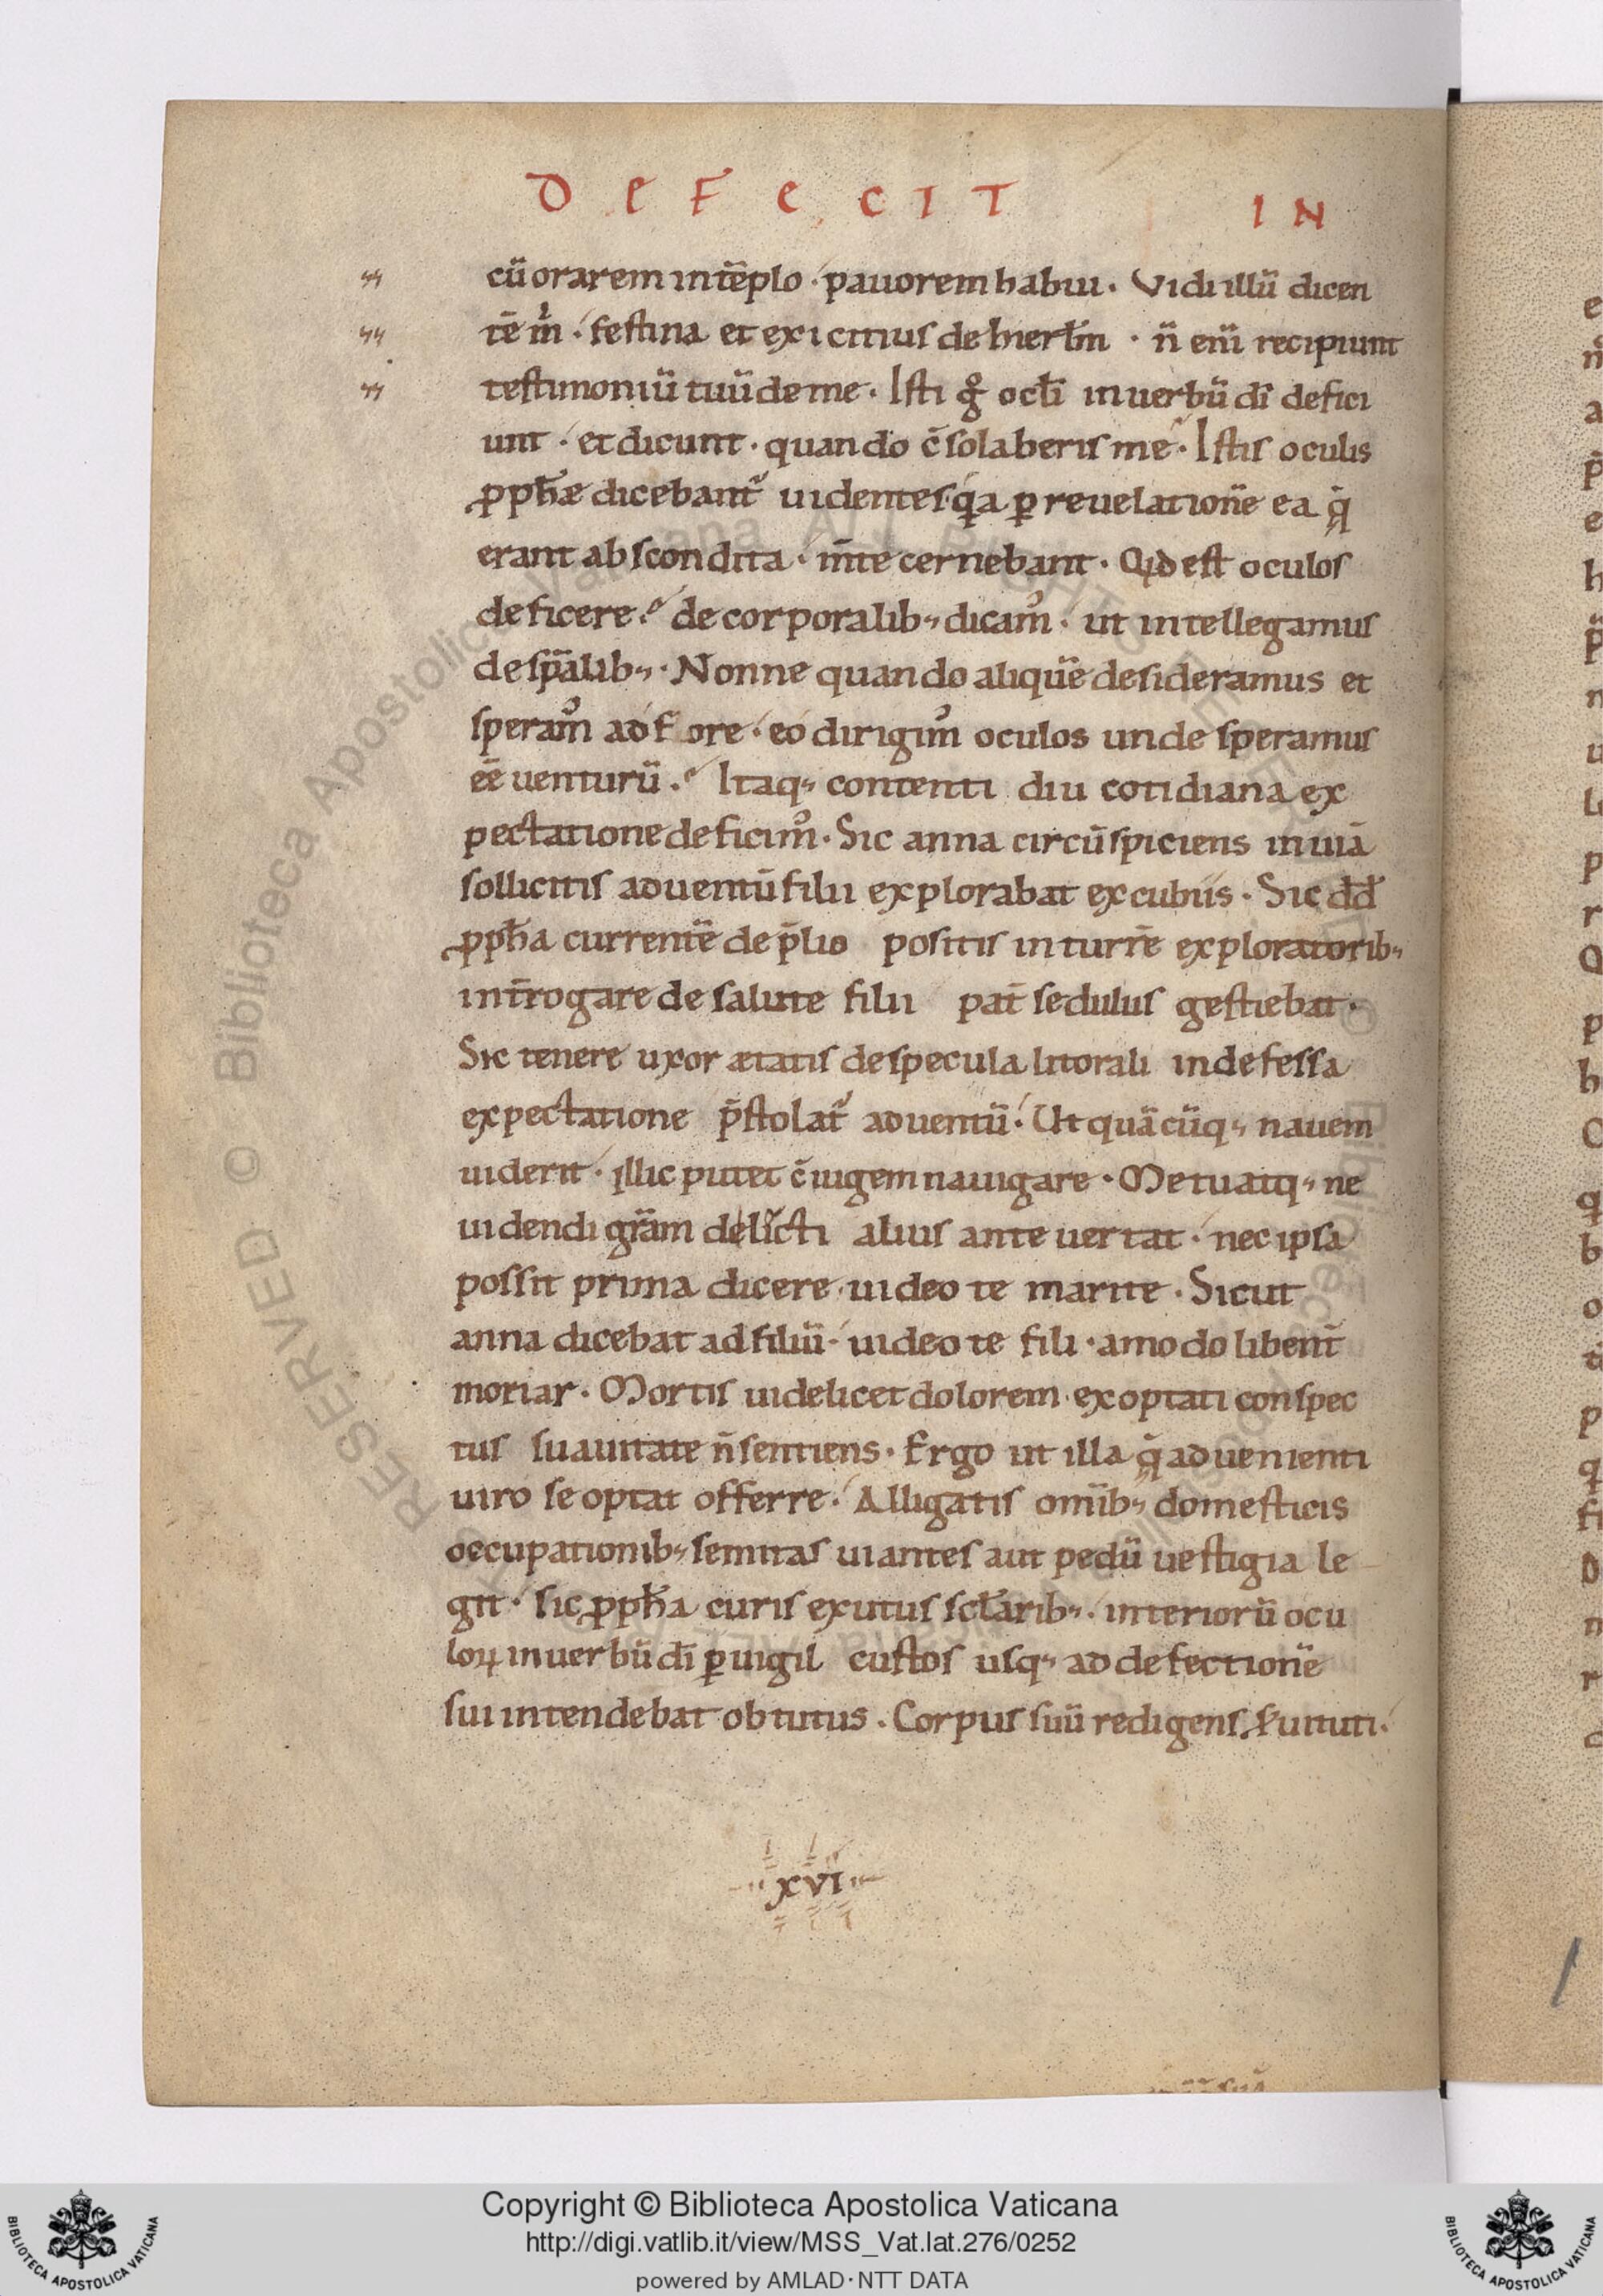 DEFECIT IN
cū orarem in tēplo · pauorem habui · Vidi illū dicen
tē m̄ · festina et exi citius de hierłm · n̄ eni̅ recipiunt
testimoniū tuū de me · Isti gͦ ocłi in uerbū dī defici
unt · et dicunt · quando c̄solaberis me · Istis oculis
ꝓphæ dicebant᷑ uidentes · q̇a ꝑ reuelationē ea q̄
erant abscondita · m̄te cernebant · Qid est oculos
deficere? de corporalib; dicam᷒ · ut intellegamus
de sp̄alib; · Nonne quando aliquē desideramus et
speram᷒ adf ore · eo dirigim᷒ oculos unde speramus
eē uenturū? Itaq; contenti diu cotidiana ex
pectatione deficim᷒ · Sic anna circūspiciens in uiā
sollicitis aduentū filii explorabat excubiis · Sic dd̄
ꝓpha currentē de p̄lio positis in turrē exploratorib;
int̄rogare de salute filii pat̄ sedulus gestiebat ·
Sic tenere uxor ætatis de specula litorali indefessa
expectatione p̄stolat᷑ aduentū · Ut quācūq; nauem
uiderit · illic putet c̄iugem nauigare · Metuatq; ne
uidendi gr̄am delic̄ti alius ante uertat · nec ipsa
possit prima dicere · uideo te marite · Sicut
anna dicebat ad filiū · uideo te fili · amodo libent̄
moriar · Mortis uidelicet dolorem exoptati conspec
tus suauitate n̄ sentiens · Ergo ut illa q̄ aduenienti
uiro se optat offerre · Alligatis omīb; domesticis
occupationib; semitas uiantes aut pedū uestigia le
git · sic ꝓpha curis exutus scłarib; · interiorū ocu
loꝝ in uerbū dī ꝑuigil custos usq; ad defectionē
sui intendebat obtutus · Corpus suū redigens s̄uituti ·
xvi
Copyright © Biblioteca Apostolica Vaticana
http://digi.vatlib.it/view/MSS_Vat.lat.276/0252
powered by AMLAD·NTT DATA